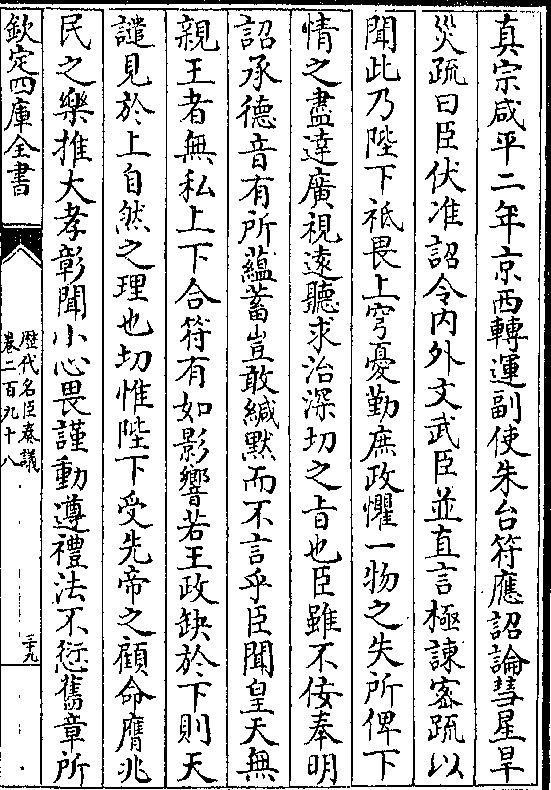 真宗咸平二年京西轉運副使朱台符應詔論彗星旱
災疏曰臣伏准詔令内外文武臣並直言極諫密疏以
聞此乃陛下祗畏上穹憂勤庶政懼一物之失所俾下
情之盡達廣視遠聽求治深切之旨也臣雖不佞奉明
詔承德音有所蘊蓄豈敢緘默而不言乎臣聞皇天無
親王者無私上下合符有如影響若王政缺於下則天
譴見於上自然之理也切惟陛下受先帝之顧命膺兆
民之樂推大孝彰聞小心畏謹動遵禮法不愆舊章所
欽定四庫全書
歷代名臣奏議
卷二百九十八
三十九